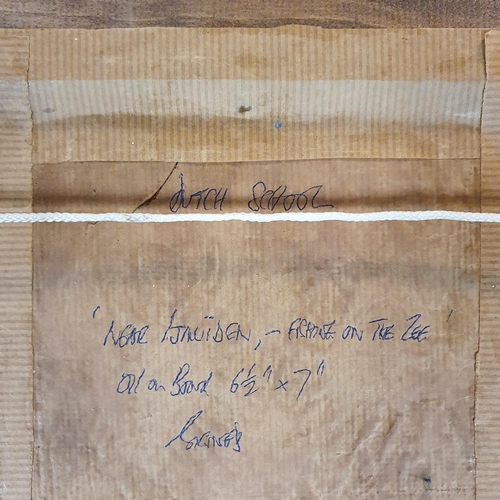 DUTCH SCHOOL
'NEAR IJMUÏDEN, – ON THE ZEE'
OIL on BOARD 6½" x 7"